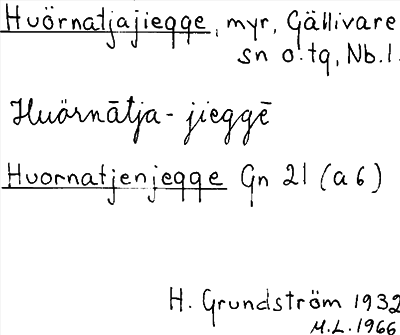 Huörnatjajiegge, myr, Gällivare
sn o. tg, Nb. l.
Huörnātja-jieggē
Huornatjenjegge Gn 21 (a 6)
H. Grundström 1932
M.L. 1966